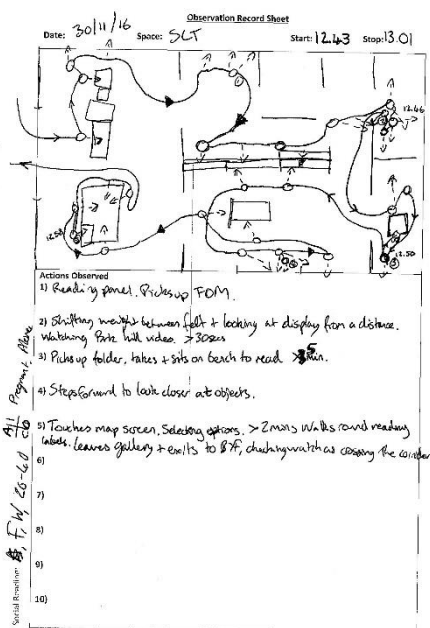 Observation Record Sheet
Date: 30/11/16 Space: SCT Start: 12.43 Stop: 13.01
12.46
12.50
12.50
Actions Observed
1) Reading panel. Picks up FDM.
2) Shifting weight between felt + looking at display from a distance.
Watching Park hill video. >30secs
3) Picks up folder, takes + sits on bench to read >5min.
4) Steps forward to look closer at objects.
5) Touches map screen. Selecting options. >2mins walks round reading
labels. Leaves gallery + exits to B/f, checking watch as crossing the corridor
6)
7)
8)
9)
10)
Social Reading: F, W, 20-40 Pregnant. Alone